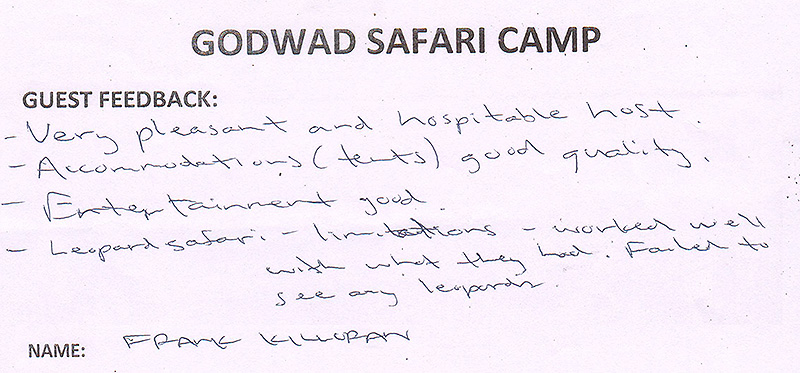 GODWAD SAFARI CAMP
GUEST FEEDBACK:
- Very pleasant and hospitable host.
- Accommodations (tents) good quality.
- Entertainment good.
- Leopard safari - limitations - worked well
with what they had. Failed to
see any leopards.
NAME: FRANK KILLORAN